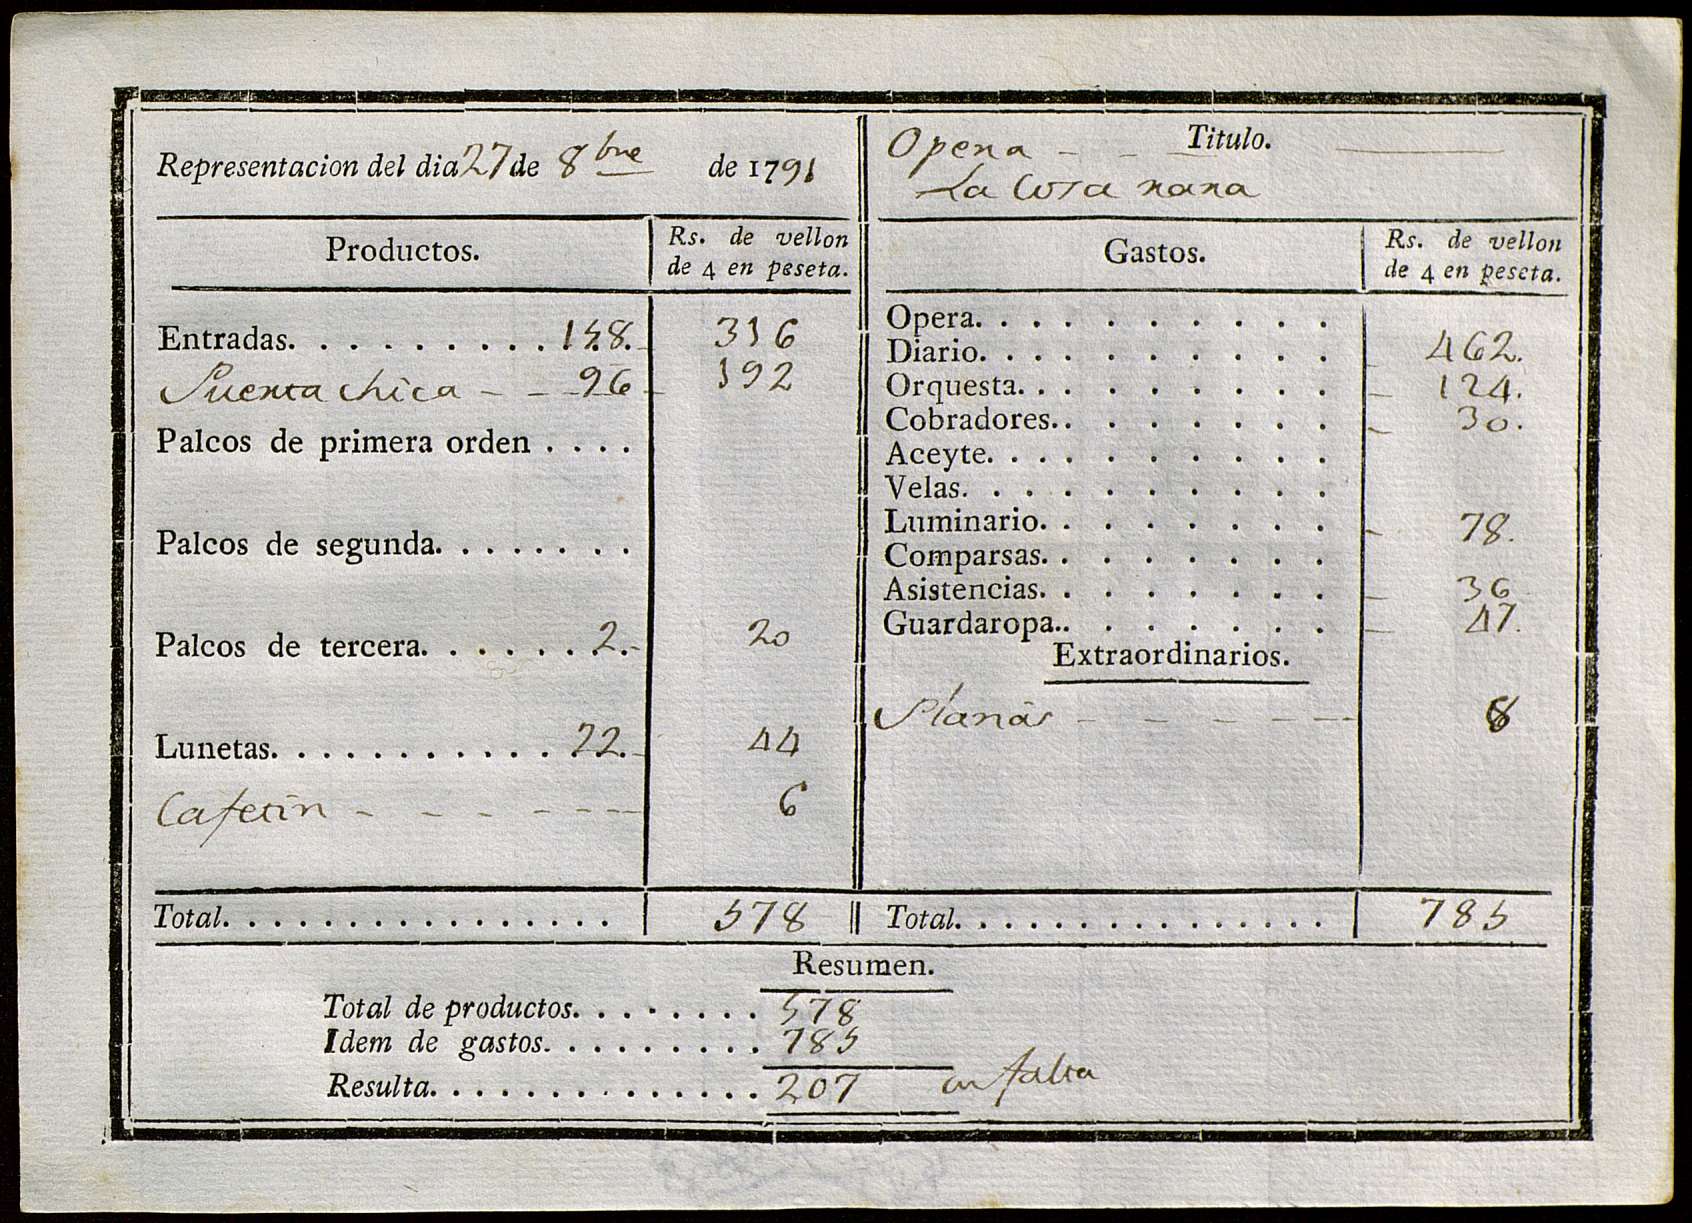 Representacion del dia 27 de 8bre de 1791
Productos.
Rs. de vellon
de 4 en peseta.
Entradas. . . . . . . . . . 158. - 316
Puerta chica - - - 96 - 192
Palcos de primera orden . . . .
Palcos de segunda. . . . . . . .
Palcos de tercera. . . . . . . 2. - 20
Lunetas. . . . . . . . . . . 22. - 44
Cafetin - - - - - - 6
Total. . . . . . . . . . . . . . . . . 578
Titulo.
Opera - - -
La Cosa rara
Gastos.
Rs. de vellon
de 4 en peseta.
Opera. . . . . . . . . .
Diario. . . . . . . . . . - 462.
Orquesta. . . . . . . . . - 124.
Cobradores.. . . . . . . . - 30.
Aceyte. . . . . . . . . .
Velas. . . . . . . . . . .
Luminario. . . . . . . . . - 78.
Comparsas. . . . . . . . .
Asistencias. . . . . . . . - 36
Guardaropa.. . . . . . . . - 47.
Extraordinarios.
Planas - - - - - - 8
Total. . . . . . . . . . . . . . . . 785
Resumen.
Total de productos. . . . . . . . 578
Idem de gastos. . . . . . . . . . 785
Resulta. . . . . . . . . . . . . . . 207 en falta